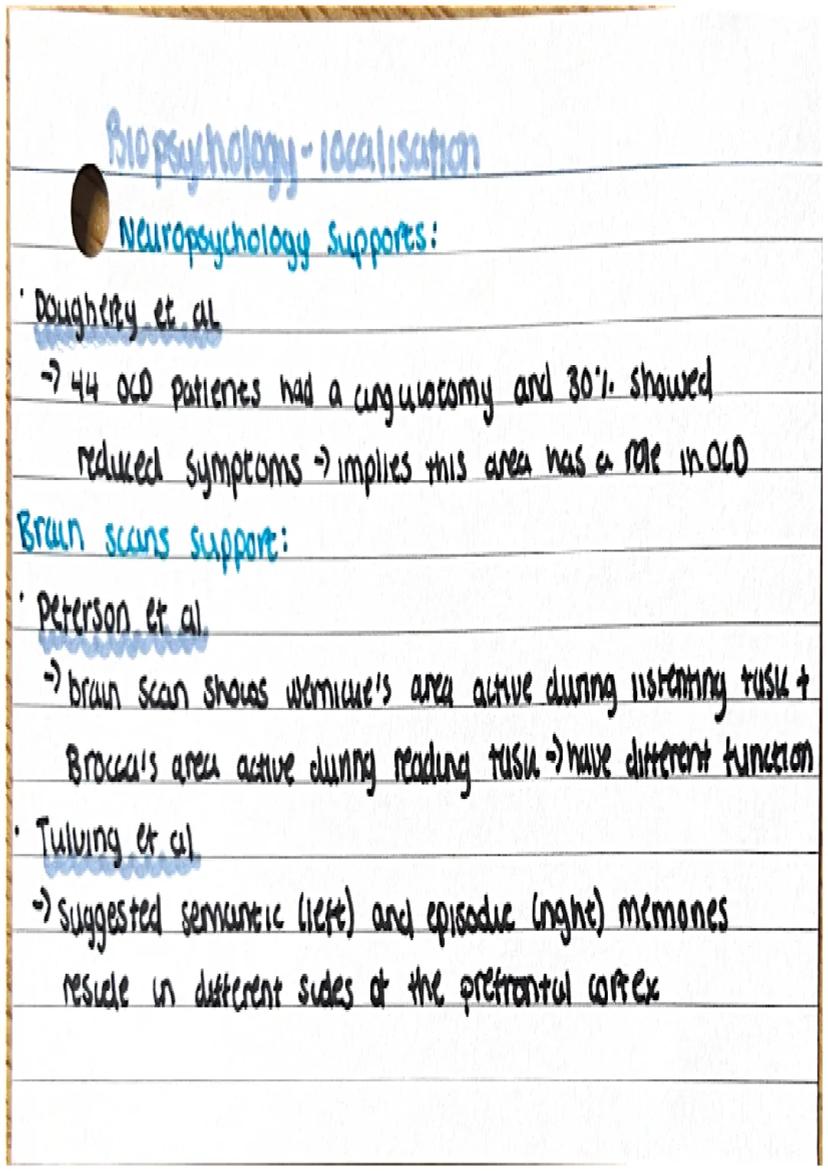 Biopsychology - localisation
Neuropsychology supports:
· Dougherty et al
→ 44 OCD patients had a cingulotomy and 30% showed
reduced symptoms → implies this area has a role in OCD
Brain scans support:
· Peterson et al
→ brain scan shows wernicke's area active during listenting task +
Brocca's area active during reading task → have different function
· Tulving et al
→ suggested semantic (left) and episodic (right) memories
reside in different sides of the prefrontal cortex